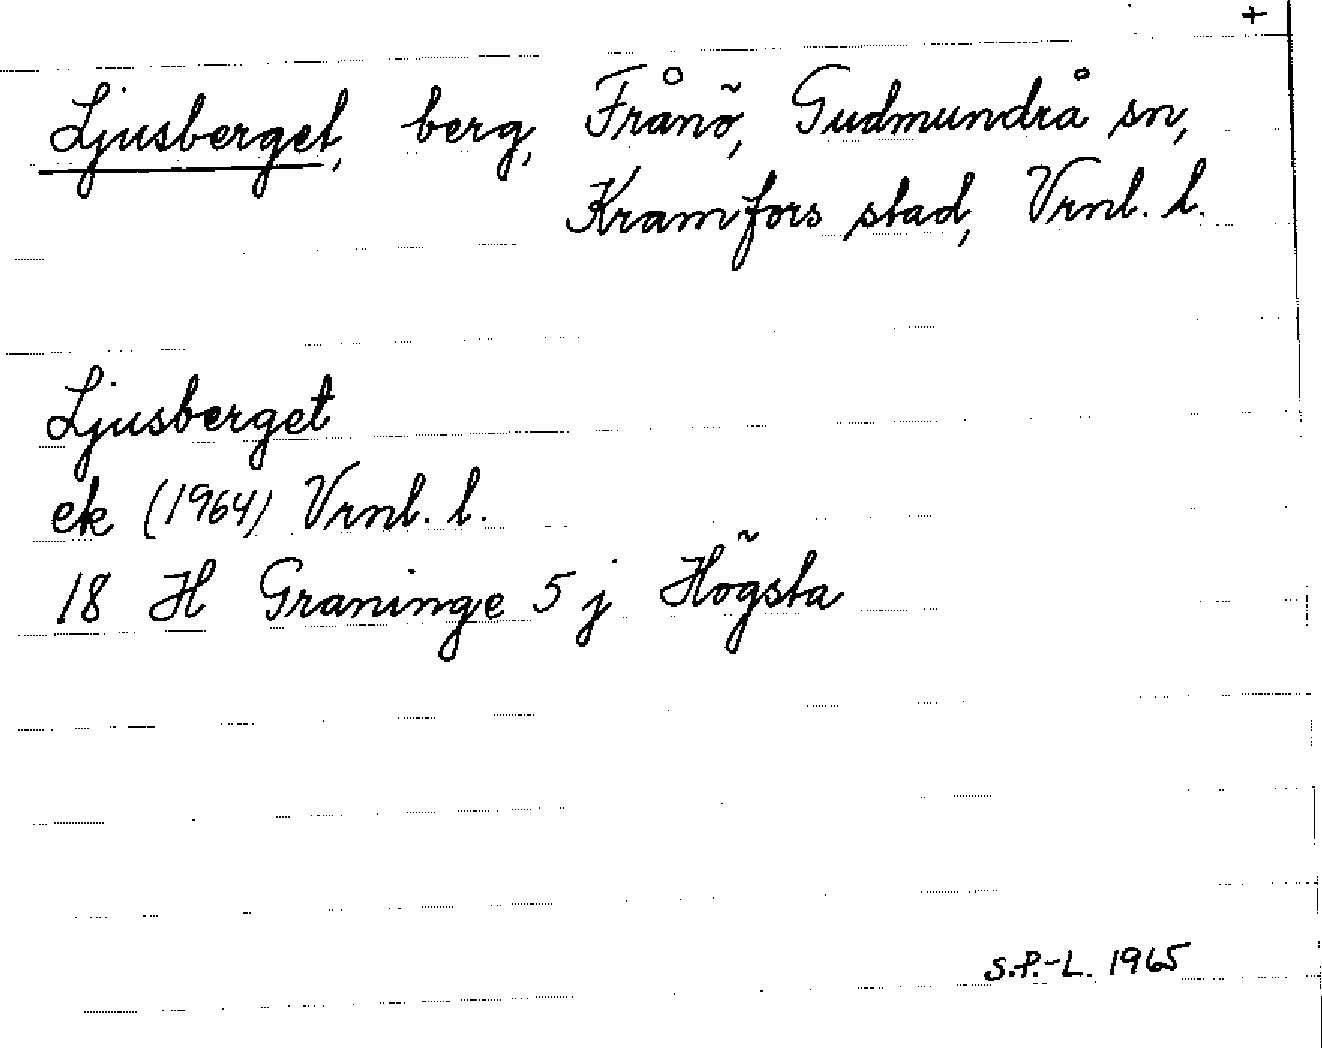 +
Ljusberget, berg, Frånö, Gudmundrå sn,
Kramfors stad, Vrnl. l.
Ljusberget
ek (1964) Vrnl. l.
18 H Graninge 5 j Högsta
S.P.-L. 1965